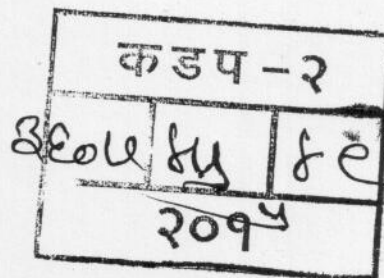 कडप - २
३६०५ ४५ ४९
२०१५